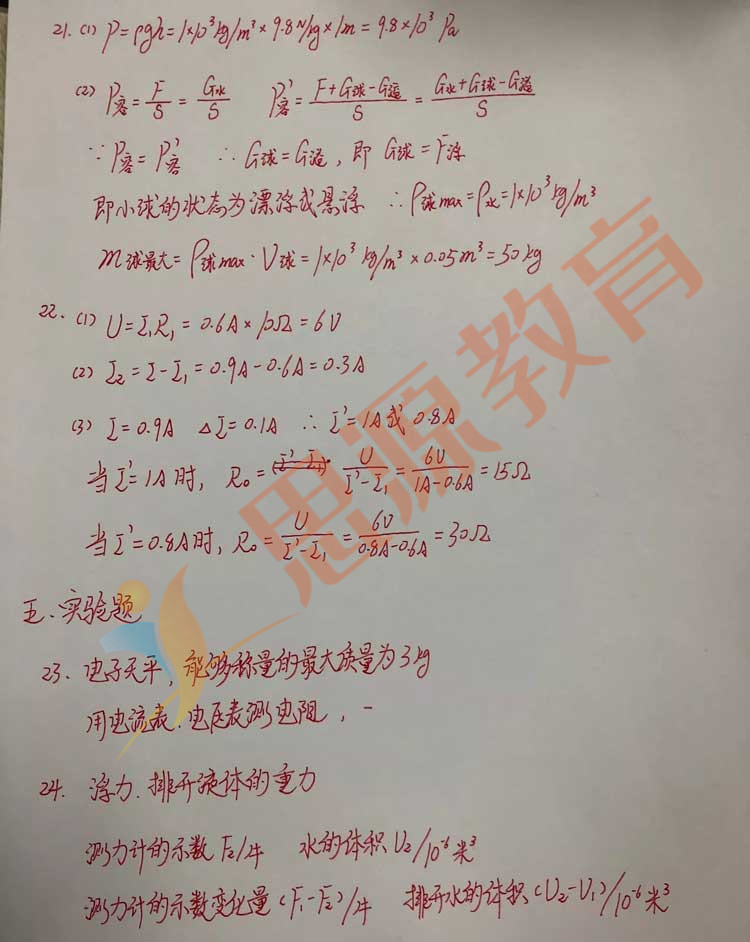 21. (1) P=ρgh=1×10³kg/m³×9.8N/kg×1m=9.8×10³Pa
(2) P容=F/S=G水/S P容'=(F+G球-G溢)/S=(G水+G球-G溢)/S
∵P容=P容' ∴G球=G溢,即 G球=F浮
即小球的状态为漂浮或悬浮 ∴ρ球max=ρ水=1×10³kg/m³
m球最大=ρ球max·V球=1×10³kg/m³×0.05m³=50kg
22. (1) U=I₁R₁=0.6A×10Ω=6V
(2) I₂=I-I₁=0.9A-0.6A=0.3A
(3) I=0.9A ΔI=0.1A ∴I'=1A或0.8A
当I'=1A时, R₀=U/(I'-I₁)=6V/(1A-0.6A)=15Ω
当I'=0.8A时, R₀=U/(I'-I₁)=6V/(0.8A-0.6A)=30Ω
五.实验题
23. 电子天平,能够称量的最大质量为3kg
用电流表.电压表测电阻,一
24. 浮力.排开液体的重力
测力计的示数F₂/牛 水的体积V₂/10⁻⁶米³
测力计的示数变化量(F₁-F₂)/牛 排开水的体积(V₂-V₁)/10⁻⁶米³
思源教育